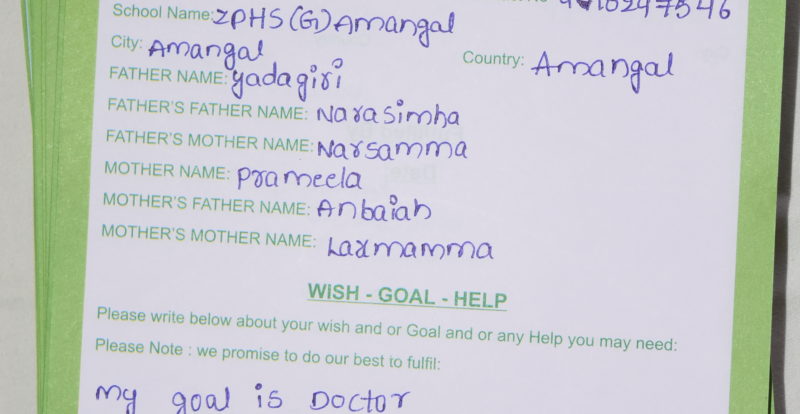 School Name: ZPHS (G) Amangal
City: Amangal Country: Amangal
FATHER NAME: yadagiri
FATHER'S FATHER NAME: Narasimha
FATHER'S MOTHER NAME: Narsamma
MOTHER NAME: Prameela
MOTHER'S FATHER NAME: Anbaiah
MOTHER'S MOTHER NAME: Laxmamma
WISH - GOAL - HELP
Please write below about your wish and or Goal and or any Help you may need:
Please Note : we promise to do our best to fulfil:
my goal is Doctor